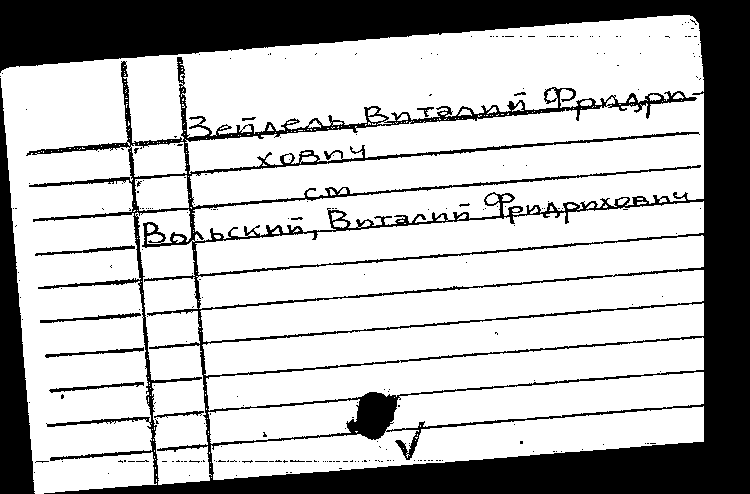 Зейдель, Виталий Фридри-
хович
см
Вольский, Виталий Фридрихович